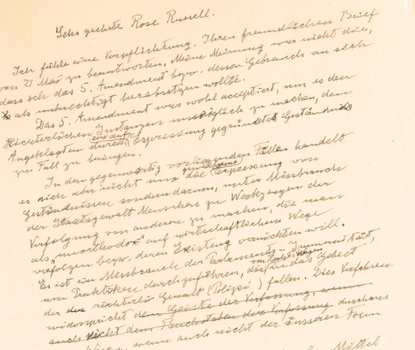 Sehr geehrte Rose Russell.
Ich fühle eine Verpflichtung, Ihren freundlichen Brief
vom 21 Mai zu beantworten. Meine Meinung war nicht die,
dass ich das 5. Amendment bezw. dessen Gebrauch an sich
als unberechtigt herabsetzen wollte.
Das 5. Amendment war wohl acceptiert, um es den
Richterlichen Instanzen unmöglich zu machen, den
Angeklagten durch auf Erpressung gegründete Geständnisse
zu Fall zu bringen.
In den gegenwärtig vorliegenden Fällen handelt
es sich aber nicht um die Erpressung von
Geständnissen sondern darum, unter Missbrauch
der Staatsgewalt Menschen zu Werkzeugen der
Verfolgung von anderen zu machen, die man
als "unorthodox" auf wirtschaftlichem Wege
verfolgen bezw. deren Existenz vernichten will.
Es ist ein Missbrauch der Parlaments-Immunität,
um Praktiken durchzuführen, die in das Gebiet
der Gewalt (Polizei) fallen. Dies Verfahren
widerspricht dem Geiste der Verfassung, wenn
auch nicht dem Buchstaben der Verfassung
wenn auch nicht der äusseren Form